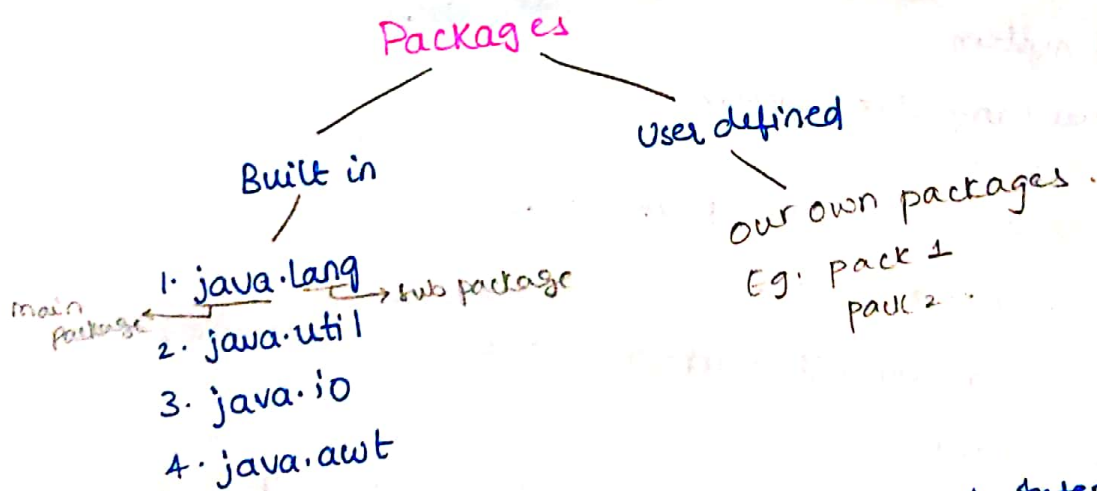 Packages
Built in
User defined
1. java.lang
main package
sub package
2. java.util
3. java.io
4. java.awt
our own packages.
Eg. pack 1
pack 2.